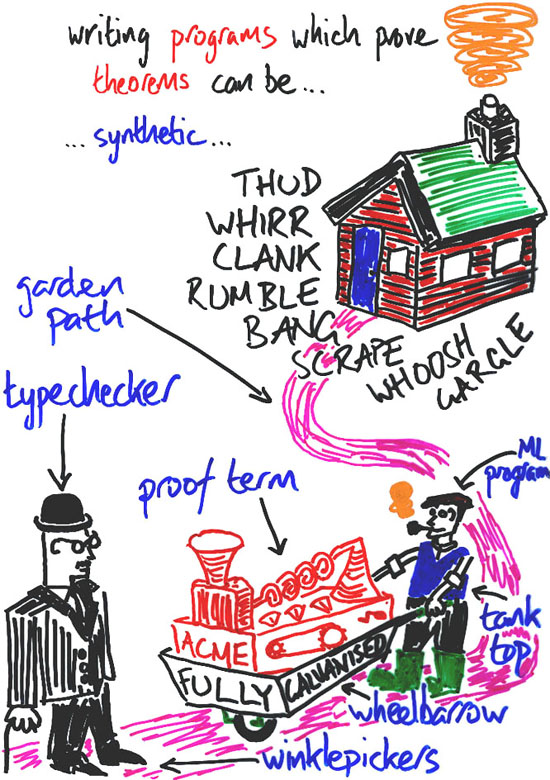 writing programs which prove
theorems can be...
...synthetic...
THUD
WHIRR
CLANK
RUMBLE
BANG
SCRAPE
WHOOSH
GARGLE
garden
path
typechecker
ML
program
proof term
tank
top
ACME
FULLY GALVANISED
wheelbarrow
winklepickers